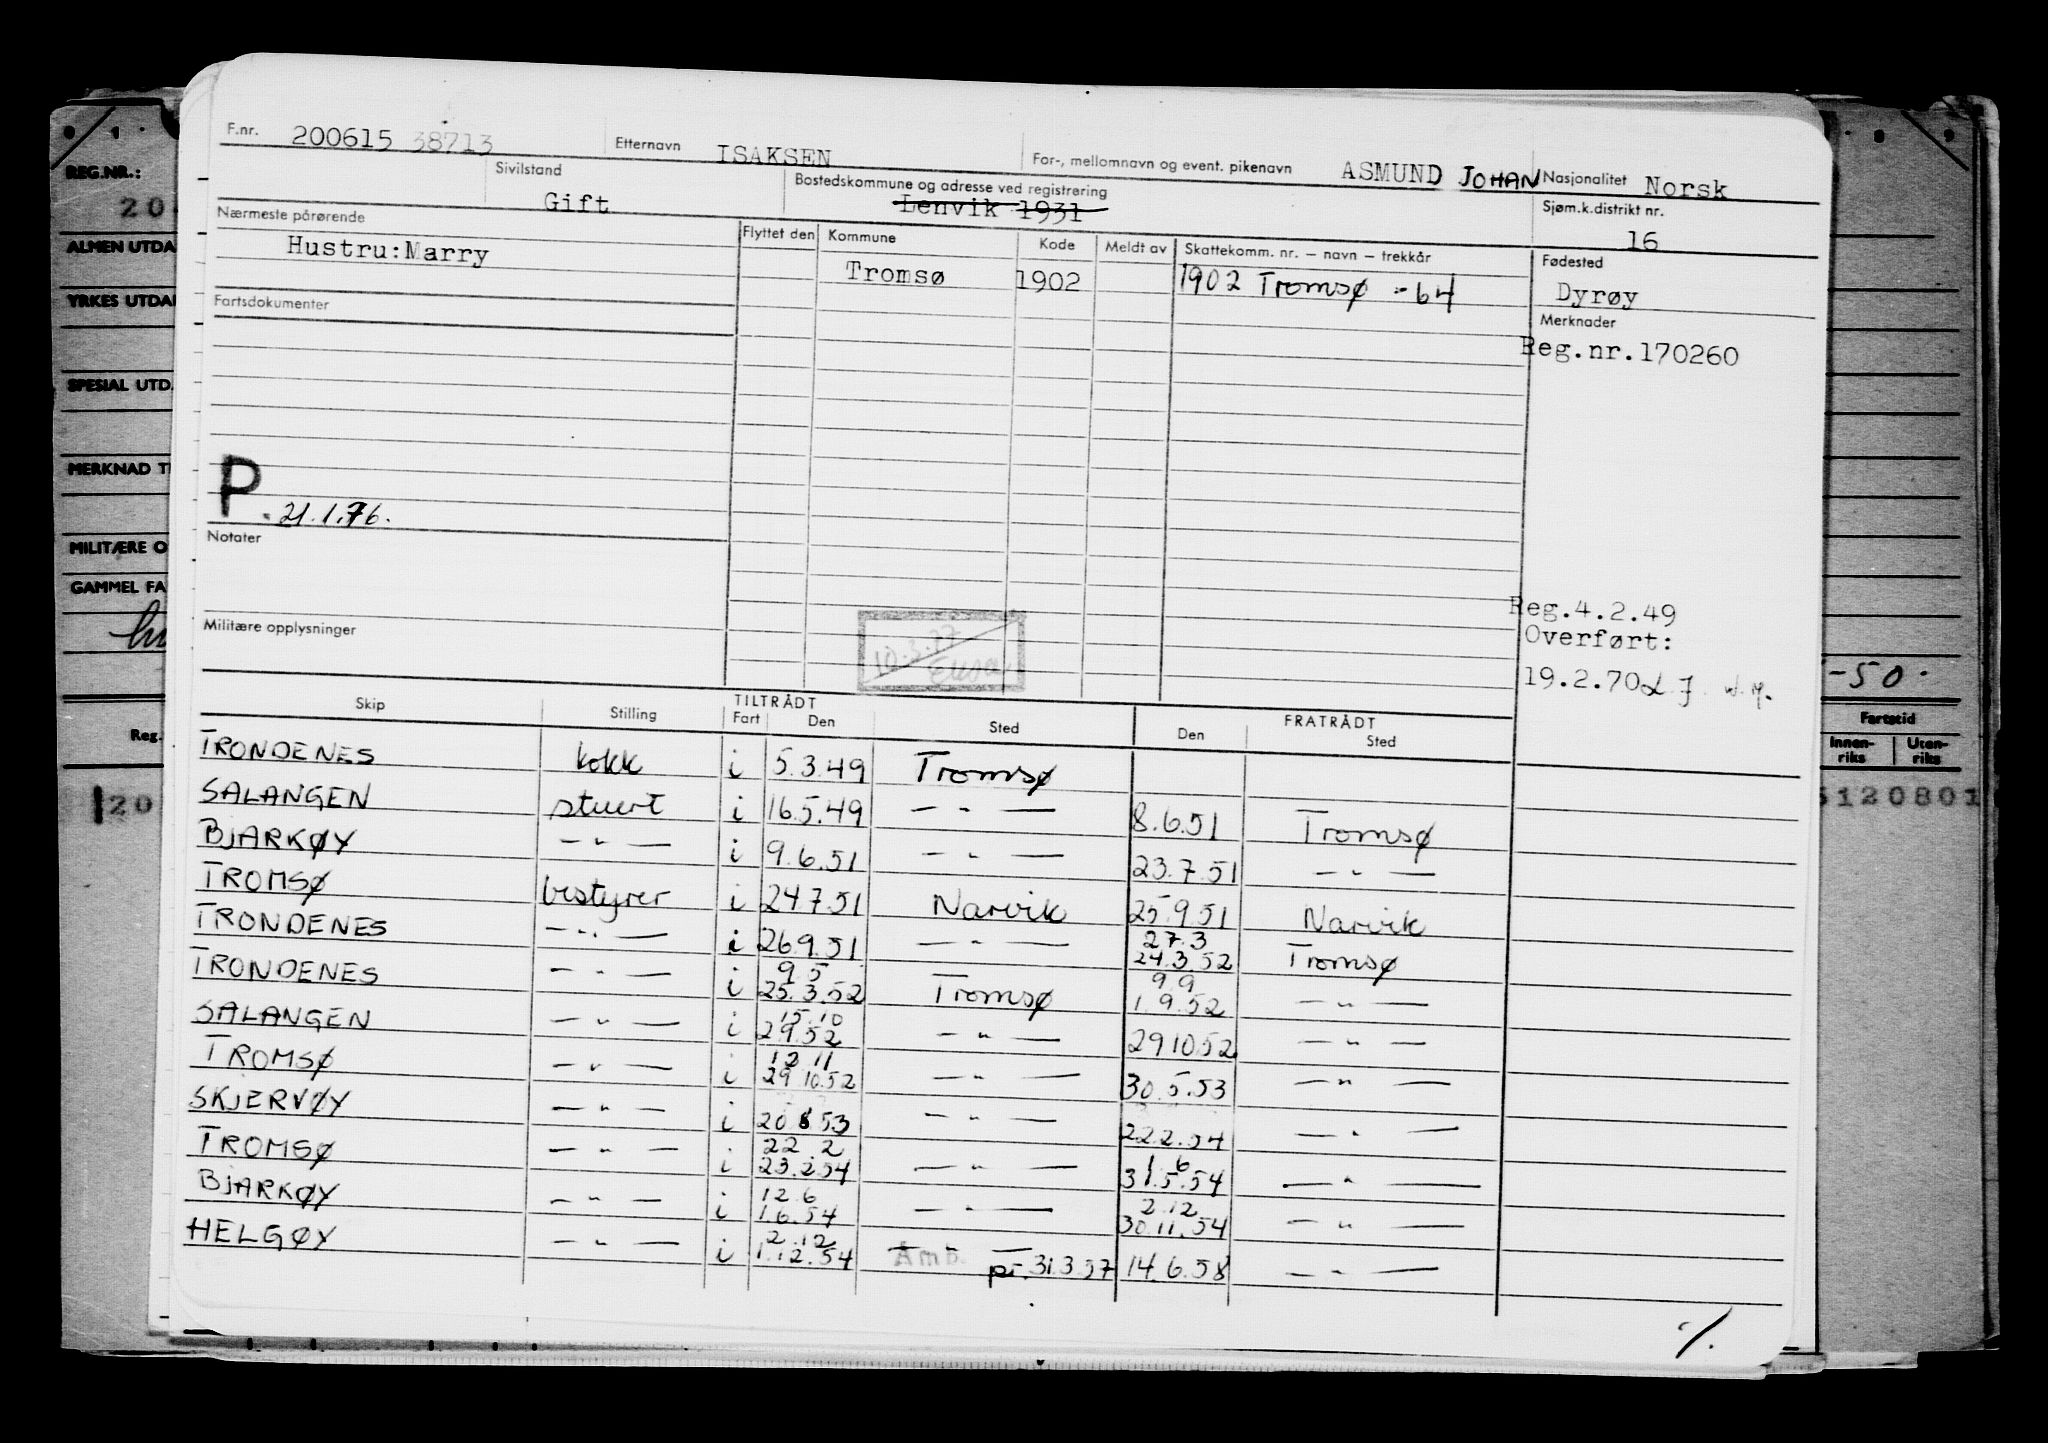 F.nr. 200615 38713 Etternavn ISAKSEN For-, mellomnavn og event. pikenavn ASMUND JOHAN Nasjonalitet Norsk
Sivilstand Gift Bostedskommune og adresse ved registrering Lenvik 1931 Sjøm.k.distrikt nr. 16
Nærmeste pårørende Flyttet den Kommune Kode Meldt av Skattekomm. nr. – navn – trekkår Fødested
Hustru:Marry Tromsø 1902 1902 Tromsø -64 Dyrøy
Fartsdokumenter Merknader
Reg.nr.170260
P. 21.1.76.
Notater
Reg.4.2.49
Militære opplysninger Overført:
10.3.77
19.2.70
Skip Stilling TILTRÅDT Fart Den Sted FRATRÅDT Den Sted
TRONDENES kokk i 5.3.49 Tromsø
SALANGEN stuert i 16.5.49 — " — 8.6.51 Tromsø
BJARKØY — " — i 9.6.51 — " — 23.7.51 — " —
TROMSØ bestyrer i 24.7.51 Narvik 25.9.51 Narvik
27.3
TRONDENES — " — i 26.9.51 — " — 24.3.52 Tromsø
9.5 9.9
TRONDENES — " — i 25.3.52 Tromsø 1.9.52 — " —
15.10
SALANGEN — " — i 2.9.52 — " — 29.10.52 — " —
12.11
TROMSØ — " — i 29.10.52 — " — 30.5.53 — " —
SKJERVØY — " — i 20.8.53 — " — 22.2.54 — " —
22.2 1.6
TROMSØ — " — i 23.2.54 — " — 31.5.54 — " —
12.6 2.12
BJARKØY — " — i 1.6.54 — " — 30.11.54 — " —
2.12
HELGØY — " — i 1.12.54 Amb. pr. 31.3.57 14.6.58 — " —
%.
REG.NR.:
20
ALMEN UTDA
YRKES UTDA
SPESIAL UTD.
MERKNAD T
MILITÆRE O
GAMMEL FA
Reg.
20
-50.
Fartstid
Innen-riks Uten-riks
5120801